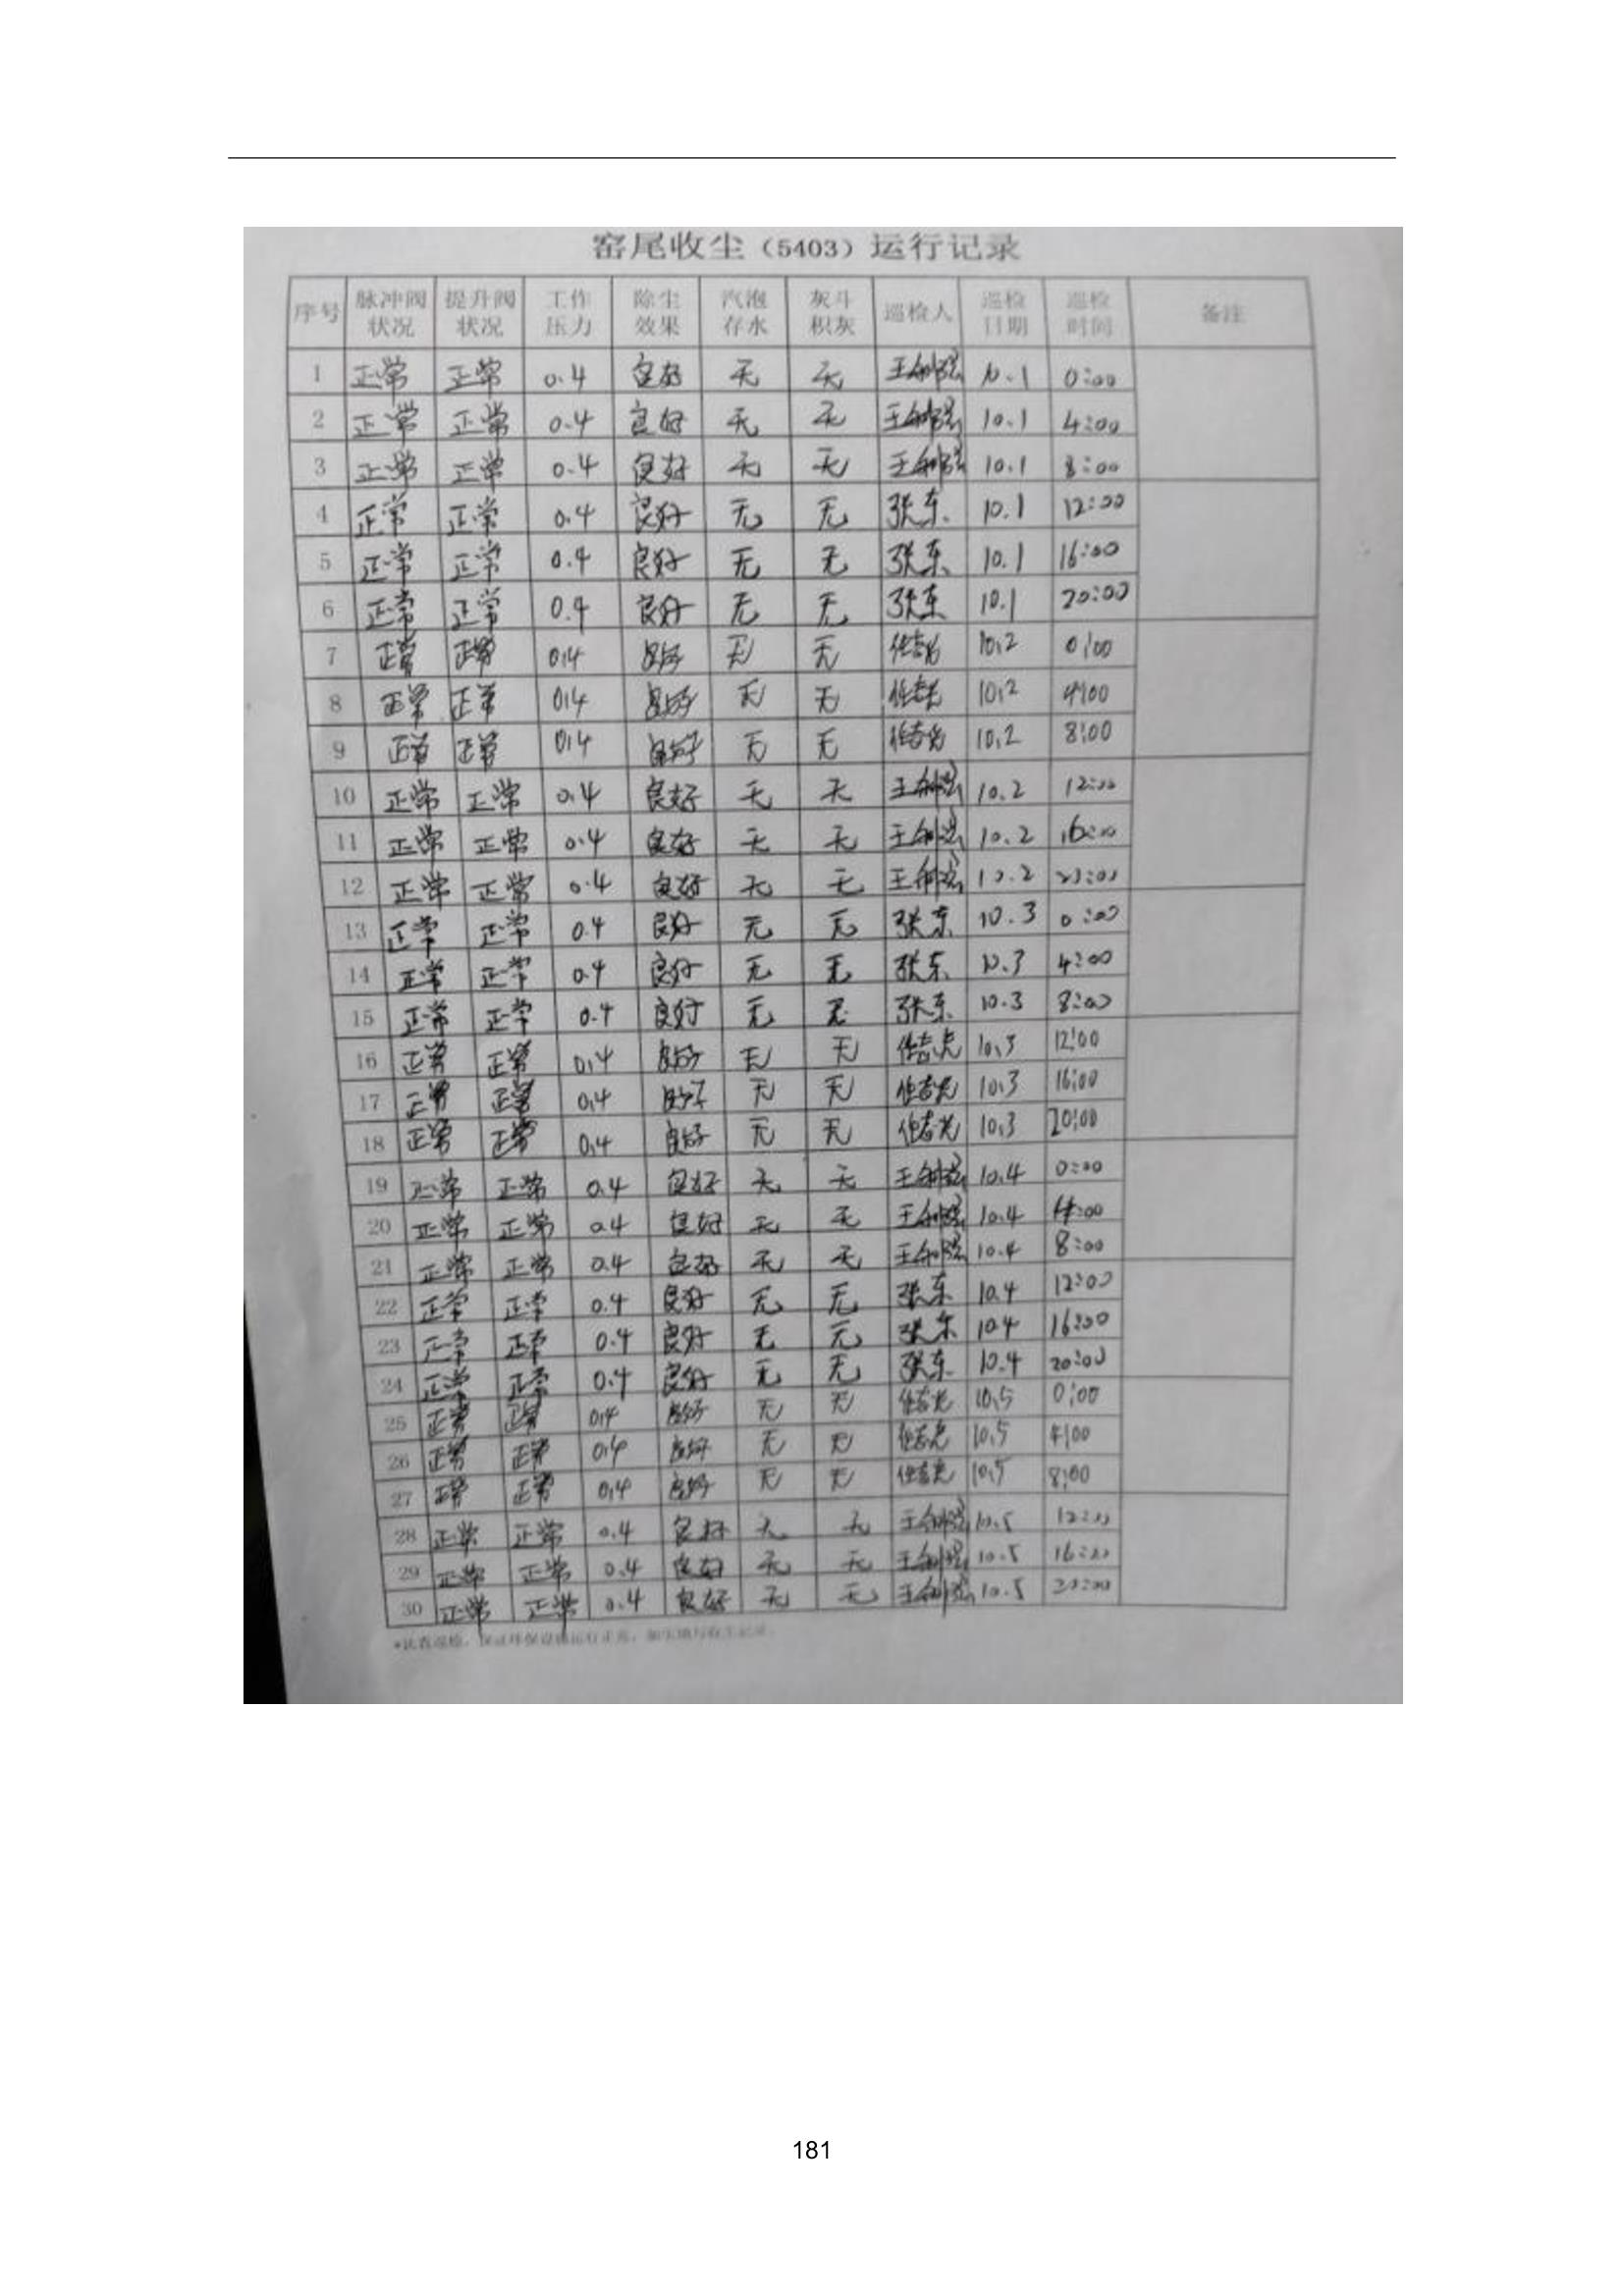 窑尾收尘（5403）运行记录
序号 脉冲阀状况 提升阀状况 工作压力 除尘效果 汽泡存水 灰斗积灰 巡检人 巡检日期 巡检时间 备注
1 正常 正常 0.4 良好 无 无 10.1 0:00
2 正常 正常 0.4 良好 无 无 10.1 4:00
3 正常 正常 0.4 良好 无 无 10.1 8:00
4 正常 正常 0.4 良好 无 无 张东 10.1 12:00
5 正常 正常 0.4 良好 无 无 张东 10.1 16:00
6 正常 正常 0.4 良好 无 无 张东 10.1 20:00
7 正常 正常 0.4 良好 无 无 10.2 0:00
8 正常 正常 0.4 良好 无 无 10.2 4:00
9 正常 正常 0.4 良好 无 无 10.2 8:00
10 正常 正常 0.4 良好 无 无 10.2 12:00
11 正常 正常 0.4 良好 无 无 10.2 16:00
12 正常 正常 0.4 良好 无 无 10.2 20:00
13 正常 正常 0.4 良好 无 无 张东 10.3 0:00
14 正常 正常 0.4 良好 无 无 张东 10.3 4:00
15 正常 正常 0.4 良好 无 无 张东 10.3 8:00
16 正常 正常 0.4 良好 无 无 10.3 12:00
17 正常 正常 0.4 良好 无 无 10.3 16:00
18 正常 正常 0.4 良好 无 无 10.3 20:00
19 正常 正常 0.4 良好 无 无 10.4 0:00
20 正常 正常 0.4 良好 无 无 10.4 4:00
21 正常 正常 0.4 良好 无 无 10.4 8:00
22 正常 正常 0.4 良好 无 无 张东 10.4 12:00
23 正常 正常 0.4 良好 无 无 张东 10.4 16:00
24 正常 正常 0.4 良好 无 无 张东 10.4 20:00
25 正常 正常 0.4 良好 无 无 10.5 0:00
26 正常 正常 0.4 良好 无 无 10.5 4:00
27 正常 正常 0.4 良好 无 无 10.5 8:00
28 正常 正常 0.4 良好 无 无 10.5 12:00
29 正常 正常 0.4 良好 无 无 10.5 16:00
30 正常 正常 0.4 良好 无 无 10.5 20:00
181